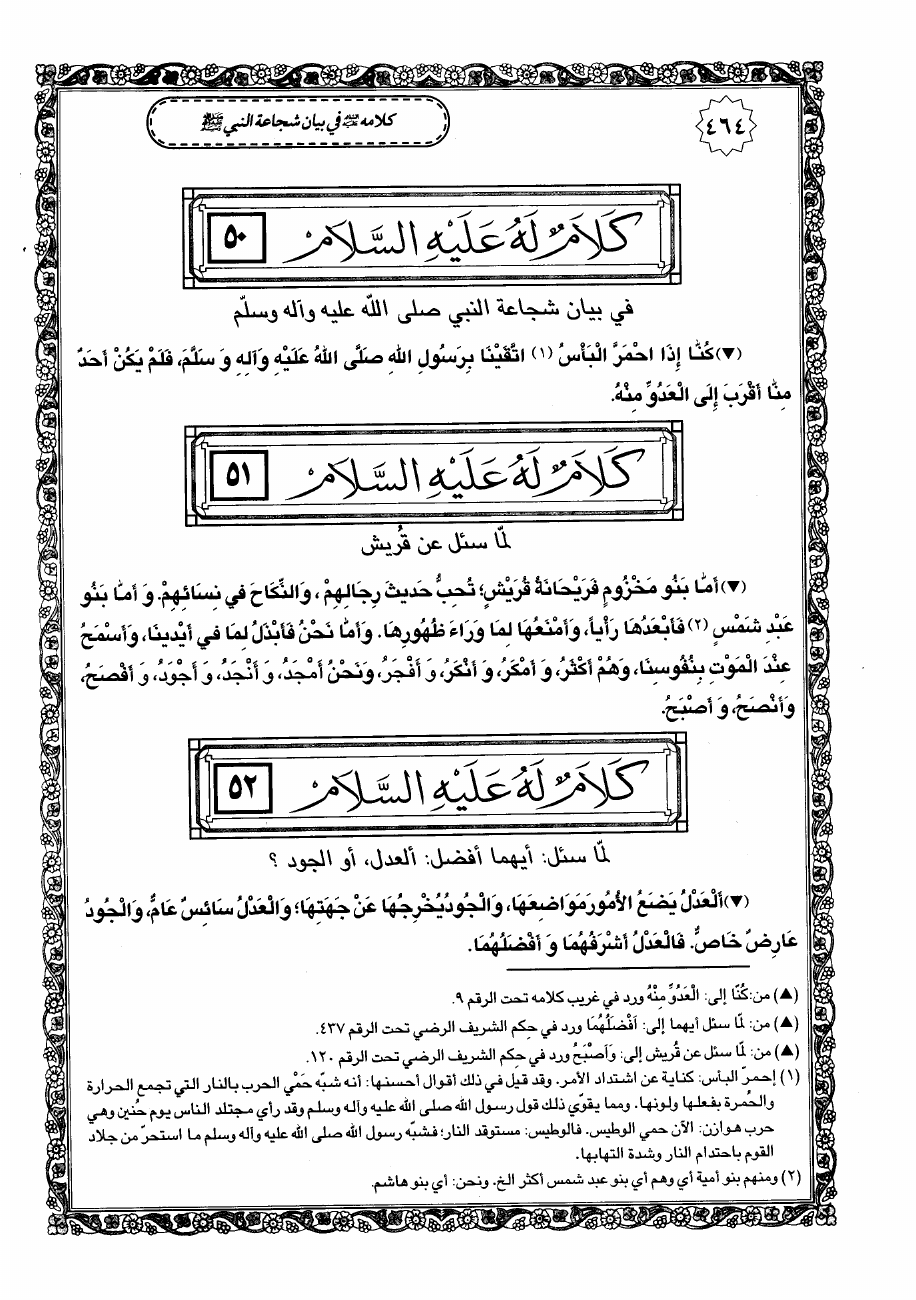 ٤٦٤
كلامه ﵇ في بيان شجاعة النبي ﷺ
كَلَامٌ لَهُ عَلَيْهِ السَّلَامُ
٥٠
في بيان شجاعة النبي صلى اللّه عليه وآله وسلّم
(▼) كُنّٰا إِذَا احْمَرَّ الْبَأْسُ (١) اتَّقَيْنَا بِرَسُولِ اللهِ صَلَّى اللهُ عَلَيْهِ وَآلِهِ وَ سَلَّمَ، فَلَمْ يَكُنْ أَحَدٌ
مِنّٰا أَقْرَبَ إِلَى الْعَدُوِّ مِنْهُ.
كَلَامٌ لَهُ عَلَيْهِ السَّلَامُ
٥١
لمّا سئل عن قُريش
(▼) أَمّٰا بَنُو مَخْزُومٍ فَرَيْحَانَةُ قُرَيْشٍ؛ تُحِبُّ حَديثَ رِجَالِهِمْ، وَالنِّكَاحَ في نِسَائِهِمْ. وَ أَمّٰا بَنُو
عَبْدِ شَمْسٍ (٢) فَأَبْعَدُهَا رَأْياً، وَأَمْنَعُهَا لِمَا وَرَاءَ ظُهُورِهَا. وَأَمّٰا نَحْنُ فَأَبْذَلُ لِمَا في أَيْدينَا، وَأَسْمَحُ
عِنْدَ الْمَوْتِ بِنُفُوسِنَا، وَهُمْ أَكْثَرُ، وَ أَمْكَرُ، وَ أَنْكَرُ، وَ أَفْجَرُ، وَنَحْنُ أَمْجَدُ، وَ أَنْجَدُ، وَ أَجْوَدُ، وَ أَفْصَحُ،
وَأَنْصَحُ، وَ أَصْبَحُ.
كَلَامٌ لَهُ عَلَيْهِ السَّلَامُ
٥٢
لمّا سئل: أيهما أفضل: ألعدل، أو الجود ؟
(▼) أَلْعَدْلُ يَضَعُ الأُمُورَ مَوَاضِعَهَا، وَالْجُودُ يُخْرِجُهَا عَنْ جَهَتِهَا؛ وَالْعَدْلُ سَائِسٌ عَامٌّ، وَالْجُودُ
عَارِضٌ خَاصٌّ. فَالْعَدْلُ أَشْرَفُهُمَا وَ أَفْضَلُهُمَا.
(▲) من: كُنّا إلى: الْعَدُوِّ مِنْهُ ورد في غريب كلامه تحت الرقم ٩.
(▲) من: لمّا سئل أيهما إلى: أَفْضَلُهُمَا ورد في حِكم الشريف الرضي تحت الرقم ٤٣٧.
(▲) من: لمّا سئل عن قُريش إلى: وَأَصْبَحُ ورد في حِكم الشريف الرضي تحت الرقم ١٢٠.
(١) إحمرّ البأس: كناية عن اشتداد الأمر. وقد قيل في ذلك أقوال أحسنها: أنه شبّه حَمْي الحرب بالنار التي تجمع الحرارة
والحُمرة بفعلها ولونها. ومما يقوّي ذلك قول رسول الله صلى الله عليه وآله وسلم وقد رأي مجتلد الناس يوم حُنين وهي
حرب هوازن: الآن حمي الوطيس. فالوطيس: مستوقد النار؛ فشبّه رسول الله صلى الله عليه وآله وسلم ما استحرّ من جلاد
القوم باحتدام النار وشدة التهابها.
(٢) ومنهم بنو أمية أي وهم أي بنو عبد شمس أكثر الخ. ونحن: أي بنو هاشم.